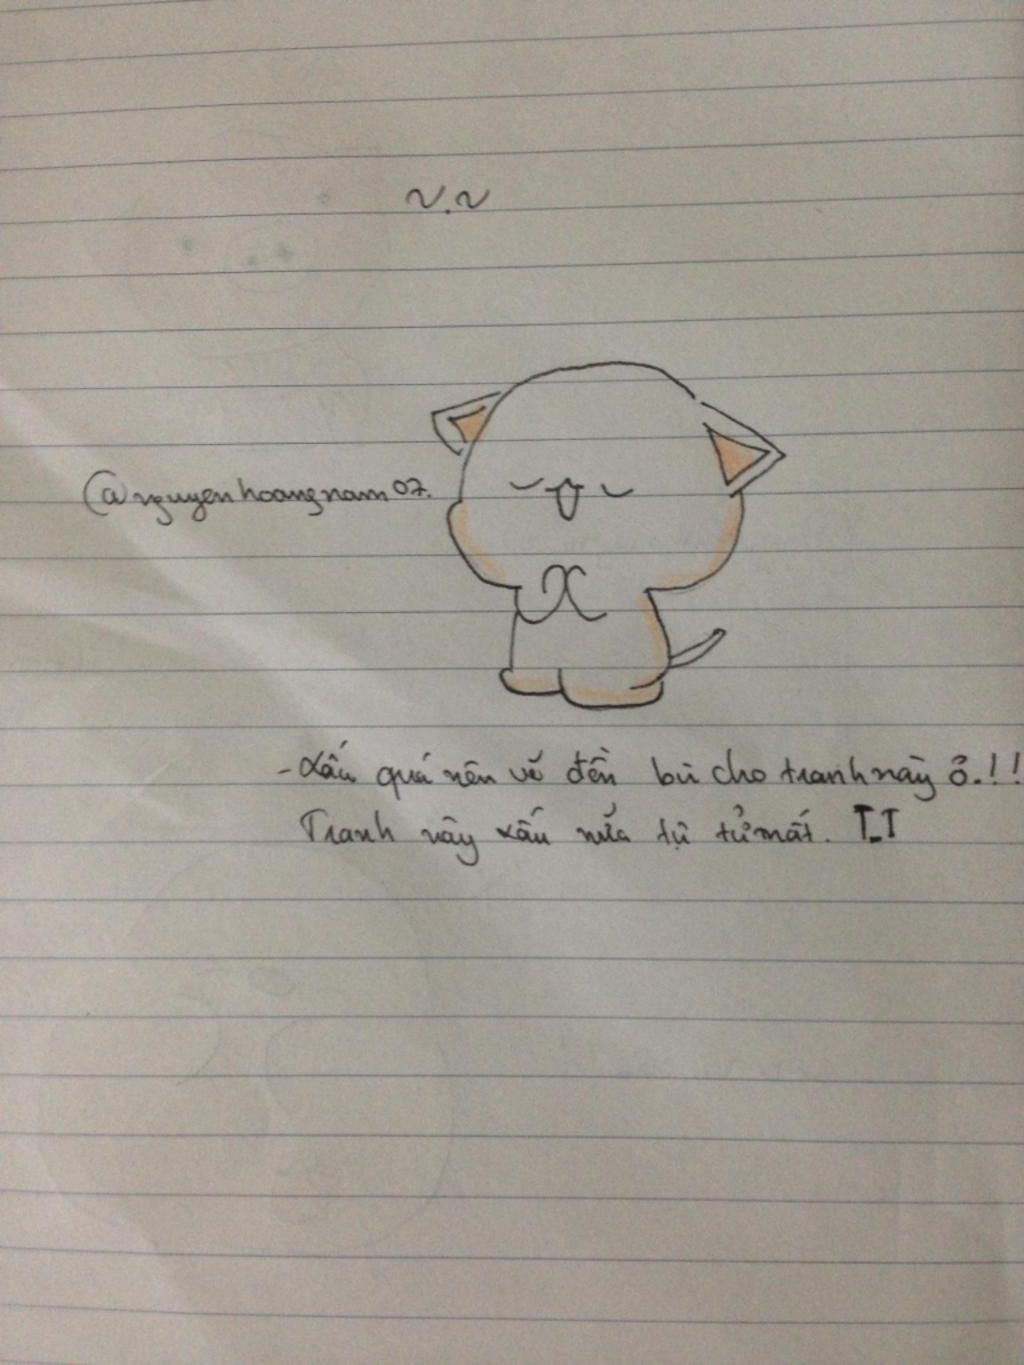 ~.~
@nguyenhoangnam07.
- Xấu quá nên vẽ đền bù cho tranh này ó.!!
Tranh này xấu nữa tự tử mất. T_T